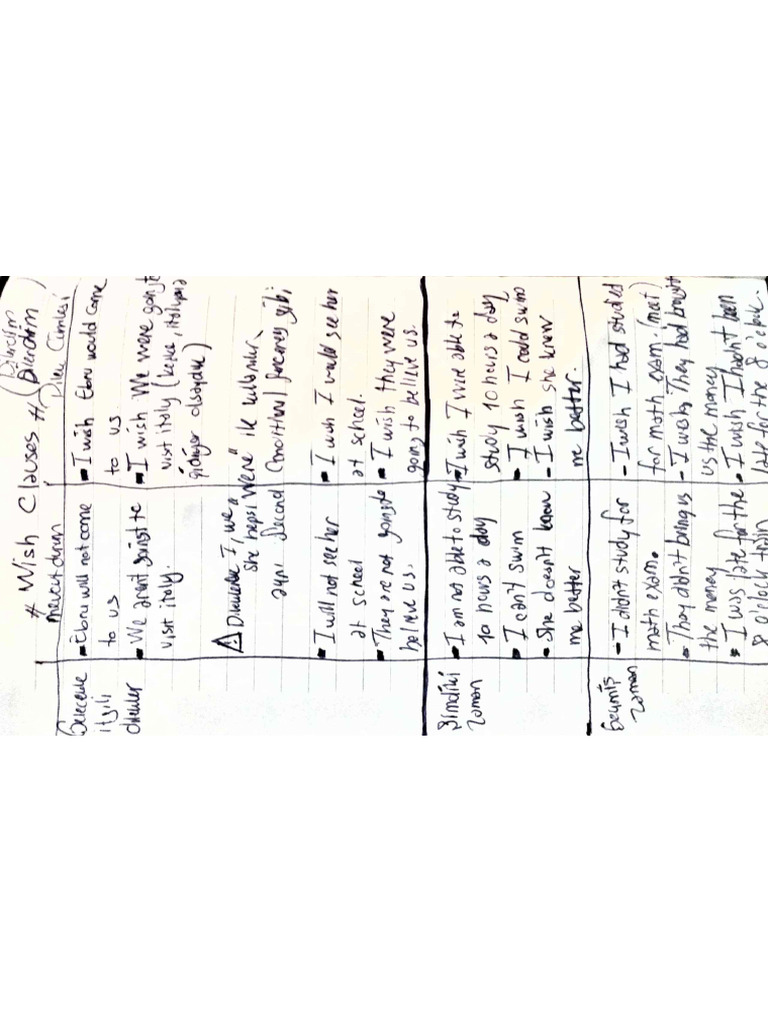 # Wish Clauses # (Dilerdim
Dilerdim)
mevcut durum
Dilek Cümlesi
Gelecekle
ilgili
dilekler
- Ebru will not come
to us
- I wish Ebru would come
to us.
- We arent going to
visit italy.
- I wish We were going to
visit italy (keşke, italyaya
gidiyor olsaydık)
⚠ Dilerken I, we,
she hepsi "Were" ile kullanılır,
aynı Second Conditional
gibi
- I will not see her
at school
- I wish I would see her
at school.
- They are not going to
believe us.
- I wish they were
going to believe us.
Şimdiki
zaman
- I am not able to study
10 hours a day
- I wish I were able to
study 10 hours a day
- I can't swim
- I wish I could swim
- She doesn't know
me better
- I wish she knew
me better.
Geçmiş
zaman
- I didn't study for
math exam.
- I wish I had studied
for math exam.
- They didn't bring us
the money
- I wish They had brought
us the money
- I was late for the
8 o'clock train
- I wish I hadn't been
late for the 8 o'clock.